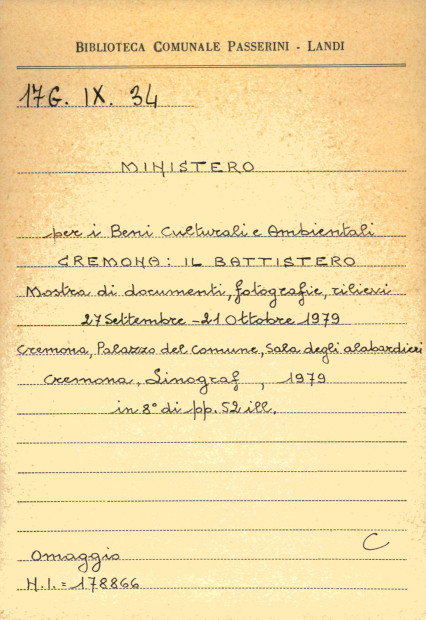 BIBLIOTECA COMUNALE PASSERINI - LANDI
17G. IX. 34
MINISTERO
per i Beni Culturali e Ambientali
CREMONA: IL BATTISTERO
Mostra di documenti, fotografie, rilievi
27 Settembre - 21 Ottobre 1979
Cremona, Palazzo del Comune, Sala degli alabardieri
Cremona, Linograf, 1979
in 8° di pp. 52 ill.
C
Omaggio
N.I. = 178866